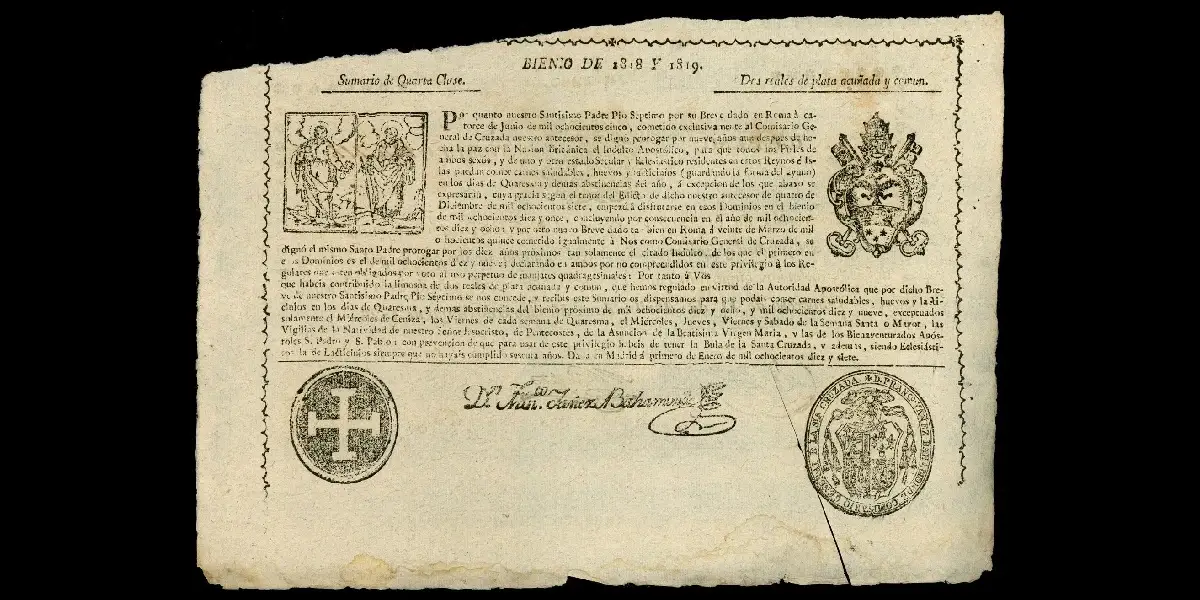 BIENIO DE 1818 Y 1819.
Sumario de Quarta Clase.
Dos reales de plata acuñada y comun.
Por quanto nuestro Santisimo Padre Pio Septimo por su Breve dado en Roma á ca-
torce de Junio de mil ochocientos cinco, cometido exclusivamente al Comisario Ge-
neral de Cruzada nuestro antecesor, se dignó prorogar por nueve años mas despues de he-
cha la paz con la Nacion Británica el Indulto Apostólico, para que todos los Fieles de
ambos sexôs, y de uno y otro estado Secular y Eclesiástico residentes en estos Reynos é Is-
las puedan comer carnes saludables, huevos y lacticinios (guardando la forma del ayuno)
en los dias de Quaresma y demas abstinencias del año, á excepcion de los que abaxo se
expresarán, cuya gracia segun el tenor del Edicto de dicho nuestro antecesor de quatro de
Diciembre de mil ochocientos siete, empezó á disfrutarse en esos Dominios en el bienio
de mil ochocientos diez y once, concluyendo por consecuencia en el año de mil ochocien-
tos diez y ocho: y por otro nuevo Breve dado tambien en Roma á veinte de Marzo de mil
ochocientos quince cometido igualmente à Nos como Comisario General de Cruzada, se
dignó el mismo Santo Padre prorogar por los diez años próximos tan solamente el citado Indulto, de los que el primero en
esos Dominios es el de mil ochocientos diez y nueve; declarando en ambos por no comprehendidos en este privilegio à los Re-
gulares que esten obligados por voto al uso perpetuo de manjares quadragesimales: Por tanto á Vos
que habeis contribuido la limosna de dos reales de plata acuñada y comun, que hemos regulado en virtud de la Autoridad Apostólica que por dicho Bre-
ve de nuestro Santisimo Padre Pio Septimo se nos concede, y recibis este Sumario os dispensamos para que podais comer carnes saludables, huevos y lacti-
cinios en los dias de Quaresma, y demas abstinencias del bienio próximo de mil ochocientos diez y ocho, y mil ochocientos diez y nueve, exceptuados
solamente el Miércoles de Ceniza, los Viernes de cada semana de Quaresma, el Miércoles, Jueves, Viernes y Sabado de la Semana Santa o Mayor, las
Vigilias de la Natividad de nuestro Señor Jesucristo, de Pentecostes, de la Asuncion de la Beatisima Virgen Maria, y las de los Bienaventurados Após-
toles S. Pedro y S. Pablo: con prevencion de que para usar de este privilegio habeis de tener la Bula de la Santa Cruzada, y ademas, siendo Eclesiásti-
co la de Lacticinios siempre que no hayais cumplido sesenta años. Dada en Madrid á primero de Enero de mil ochocientos diez y siete.
Dn. Franco. Yañez Bahamonde